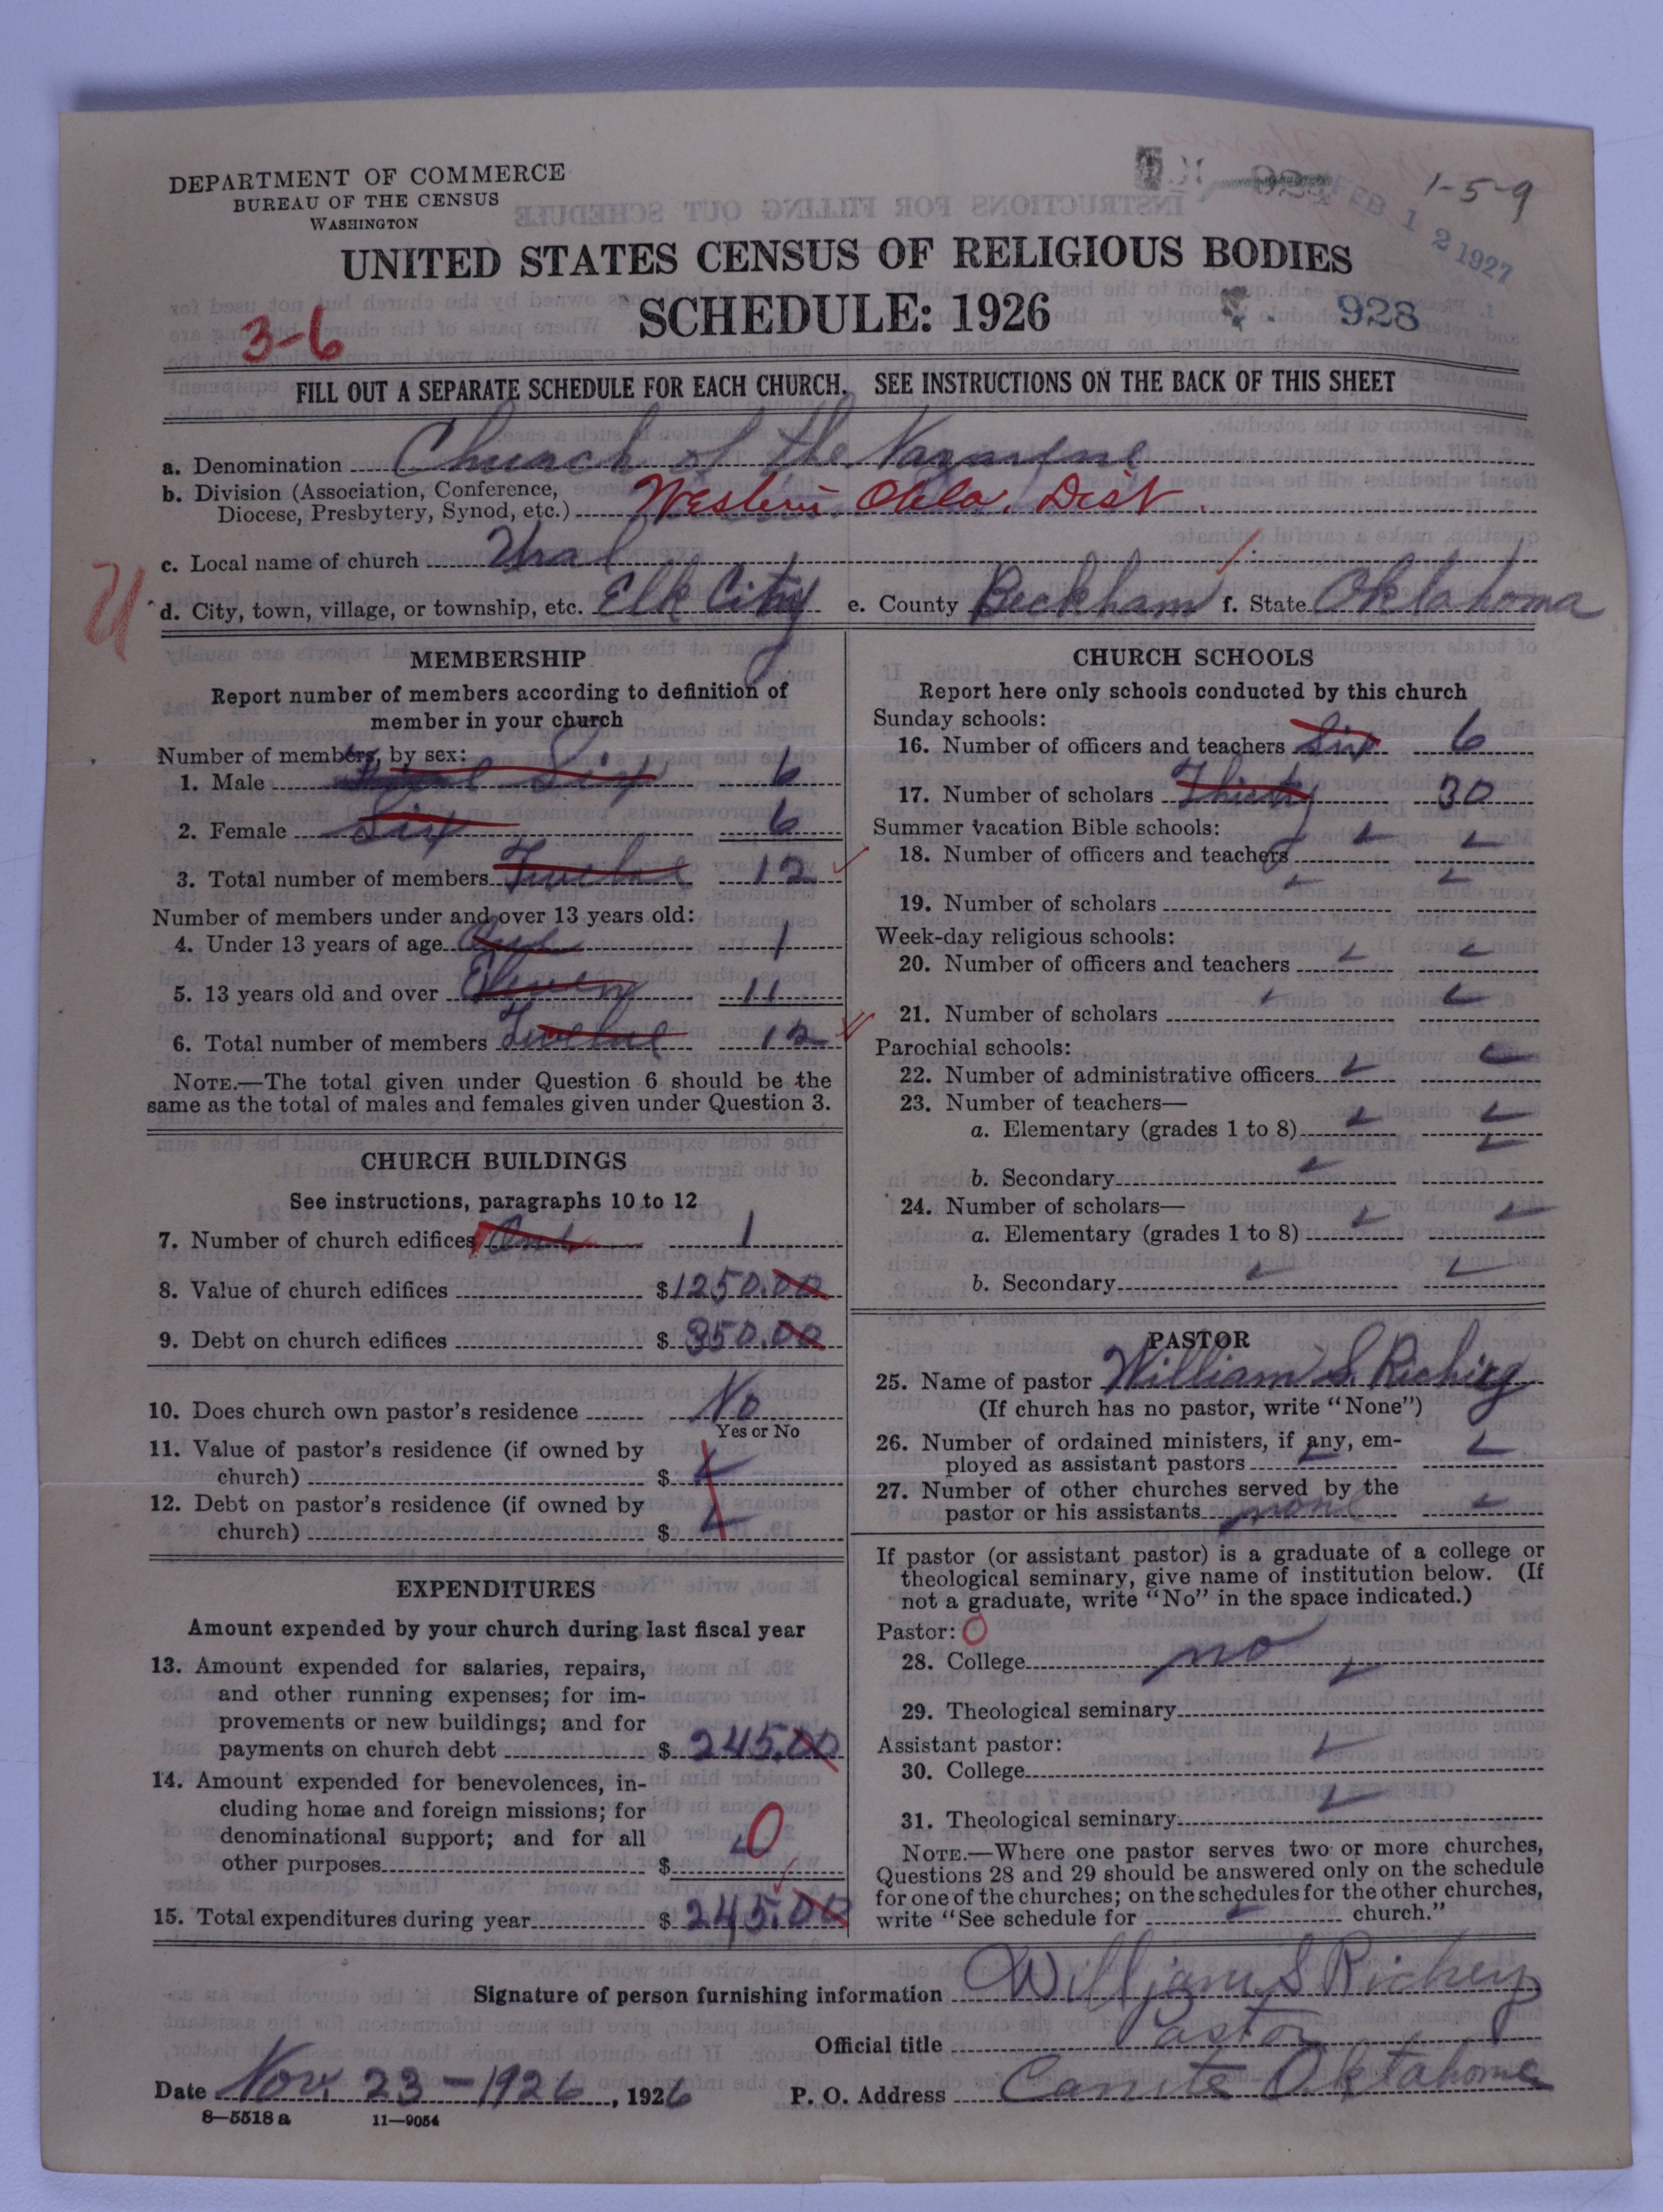 DEPARTMENT OF COMMERCE
BUREAU OF THE CENSUS
WASHINGTON
1-5-9
FEB 12 1927
UNITED STATES CENSUS OF RELIGIOUS BODIES
SCHEDULE: 1926
928
3-6
FILL OUT A SEPARATE SCHEDULE FOR EACH CHURCH. SEE INSTRUCTIONS ON THE BACK OF THIS SHEET
a. Denomination Church of the Nazarene
b. Division (Association, Conference,
Diocese, Presbytery, Synod, etc.) Western Okla. Dist.
c. Local name of church Ural
d. City, town, village, or township, etc. Elk City e. County Beckham f. State Oklahoma
MEMBERSHIP
Report number of members according to definition of
member in your church
Number of members, by sex:
1. Male Six 6
2. Female Six 6
3. Total number of members Twelve 12
Number of members under and over 13 years old:
4. Under 13 years of age One 1
5. 13 years old and over Eleven 11
6. Total number of members Twelve 12
NOTE.—The total given under Question 6 should be the
same as the total of males and females given under Question 3.
CHURCH BUILDINGS
See instructions, paragraphs 10 to 12
7. Number of church edifices One 1
8. Value of church edifices $1250.00
9. Debt on church edifices $ 350.00
10. Does church own pastor's residence No
Yes or No
11. Value of pastor's residence (if owned by
church) $
12. Debt on pastor's residence (if owned by
church) $
EXPENDITURES
Amount expended by your church during last fiscal year
13. Amount expended for salaries, repairs,
and other running expenses; for im-
provements or new buildings; and for
payments on church debt $ 245.00
14. Amount expended for benevolences, in-
cluding home and foreign missions; for
denominational support; and for all
other purposes $ 0
15. Total expenditures during year $ 245.00
CHURCH SCHOOLS
Report here only schools conducted by this church
Sunday schools:
16. Number of officers and teachers Six 6
17. Number of scholars Thirty 30
Summer vacation Bible schools:
18. Number of officers and teachers
19. Number of scholars
Week-day religious schools:
20. Number of officers and teachers
21. Number of scholars
Parochial schools:
22. Number of administrative officers
23. Number of teachers—
a. Elementary (grades 1 to 8)
b. Secondary
24. Number of scholars—
a. Elementary (grades 1 to 8)
b. Secondary
PASTOR
25. Name of pastor William S. Richey
(If church has no pastor, write "None")
26. Number of ordained ministers, if any, em-
ployed as assistant pastors
27. Number of other churches served by the
pastor or his assistants none
If pastor (or assistant pastor) is a graduate of a college or
theological seminary, give name of institution below. (If
not a graduate, write "No" in the space indicated.)
Pastor: 0
28. College no
29. Theological seminary
Assistant pastor:
30. College
31. Theological seminary
NOTE.—Where one pastor serves two or more churches,
Questions 28 and 29 should be answered only on the schedule
for one of the churches; on the schedules for the other churches,
write "See schedule for church."
Signature of person furnishing information William S Richey
Official title Pastor
Date Nov. 23-1926, 1926 P. O. Address Canute Oklahoma
8-5518 a 11-9054